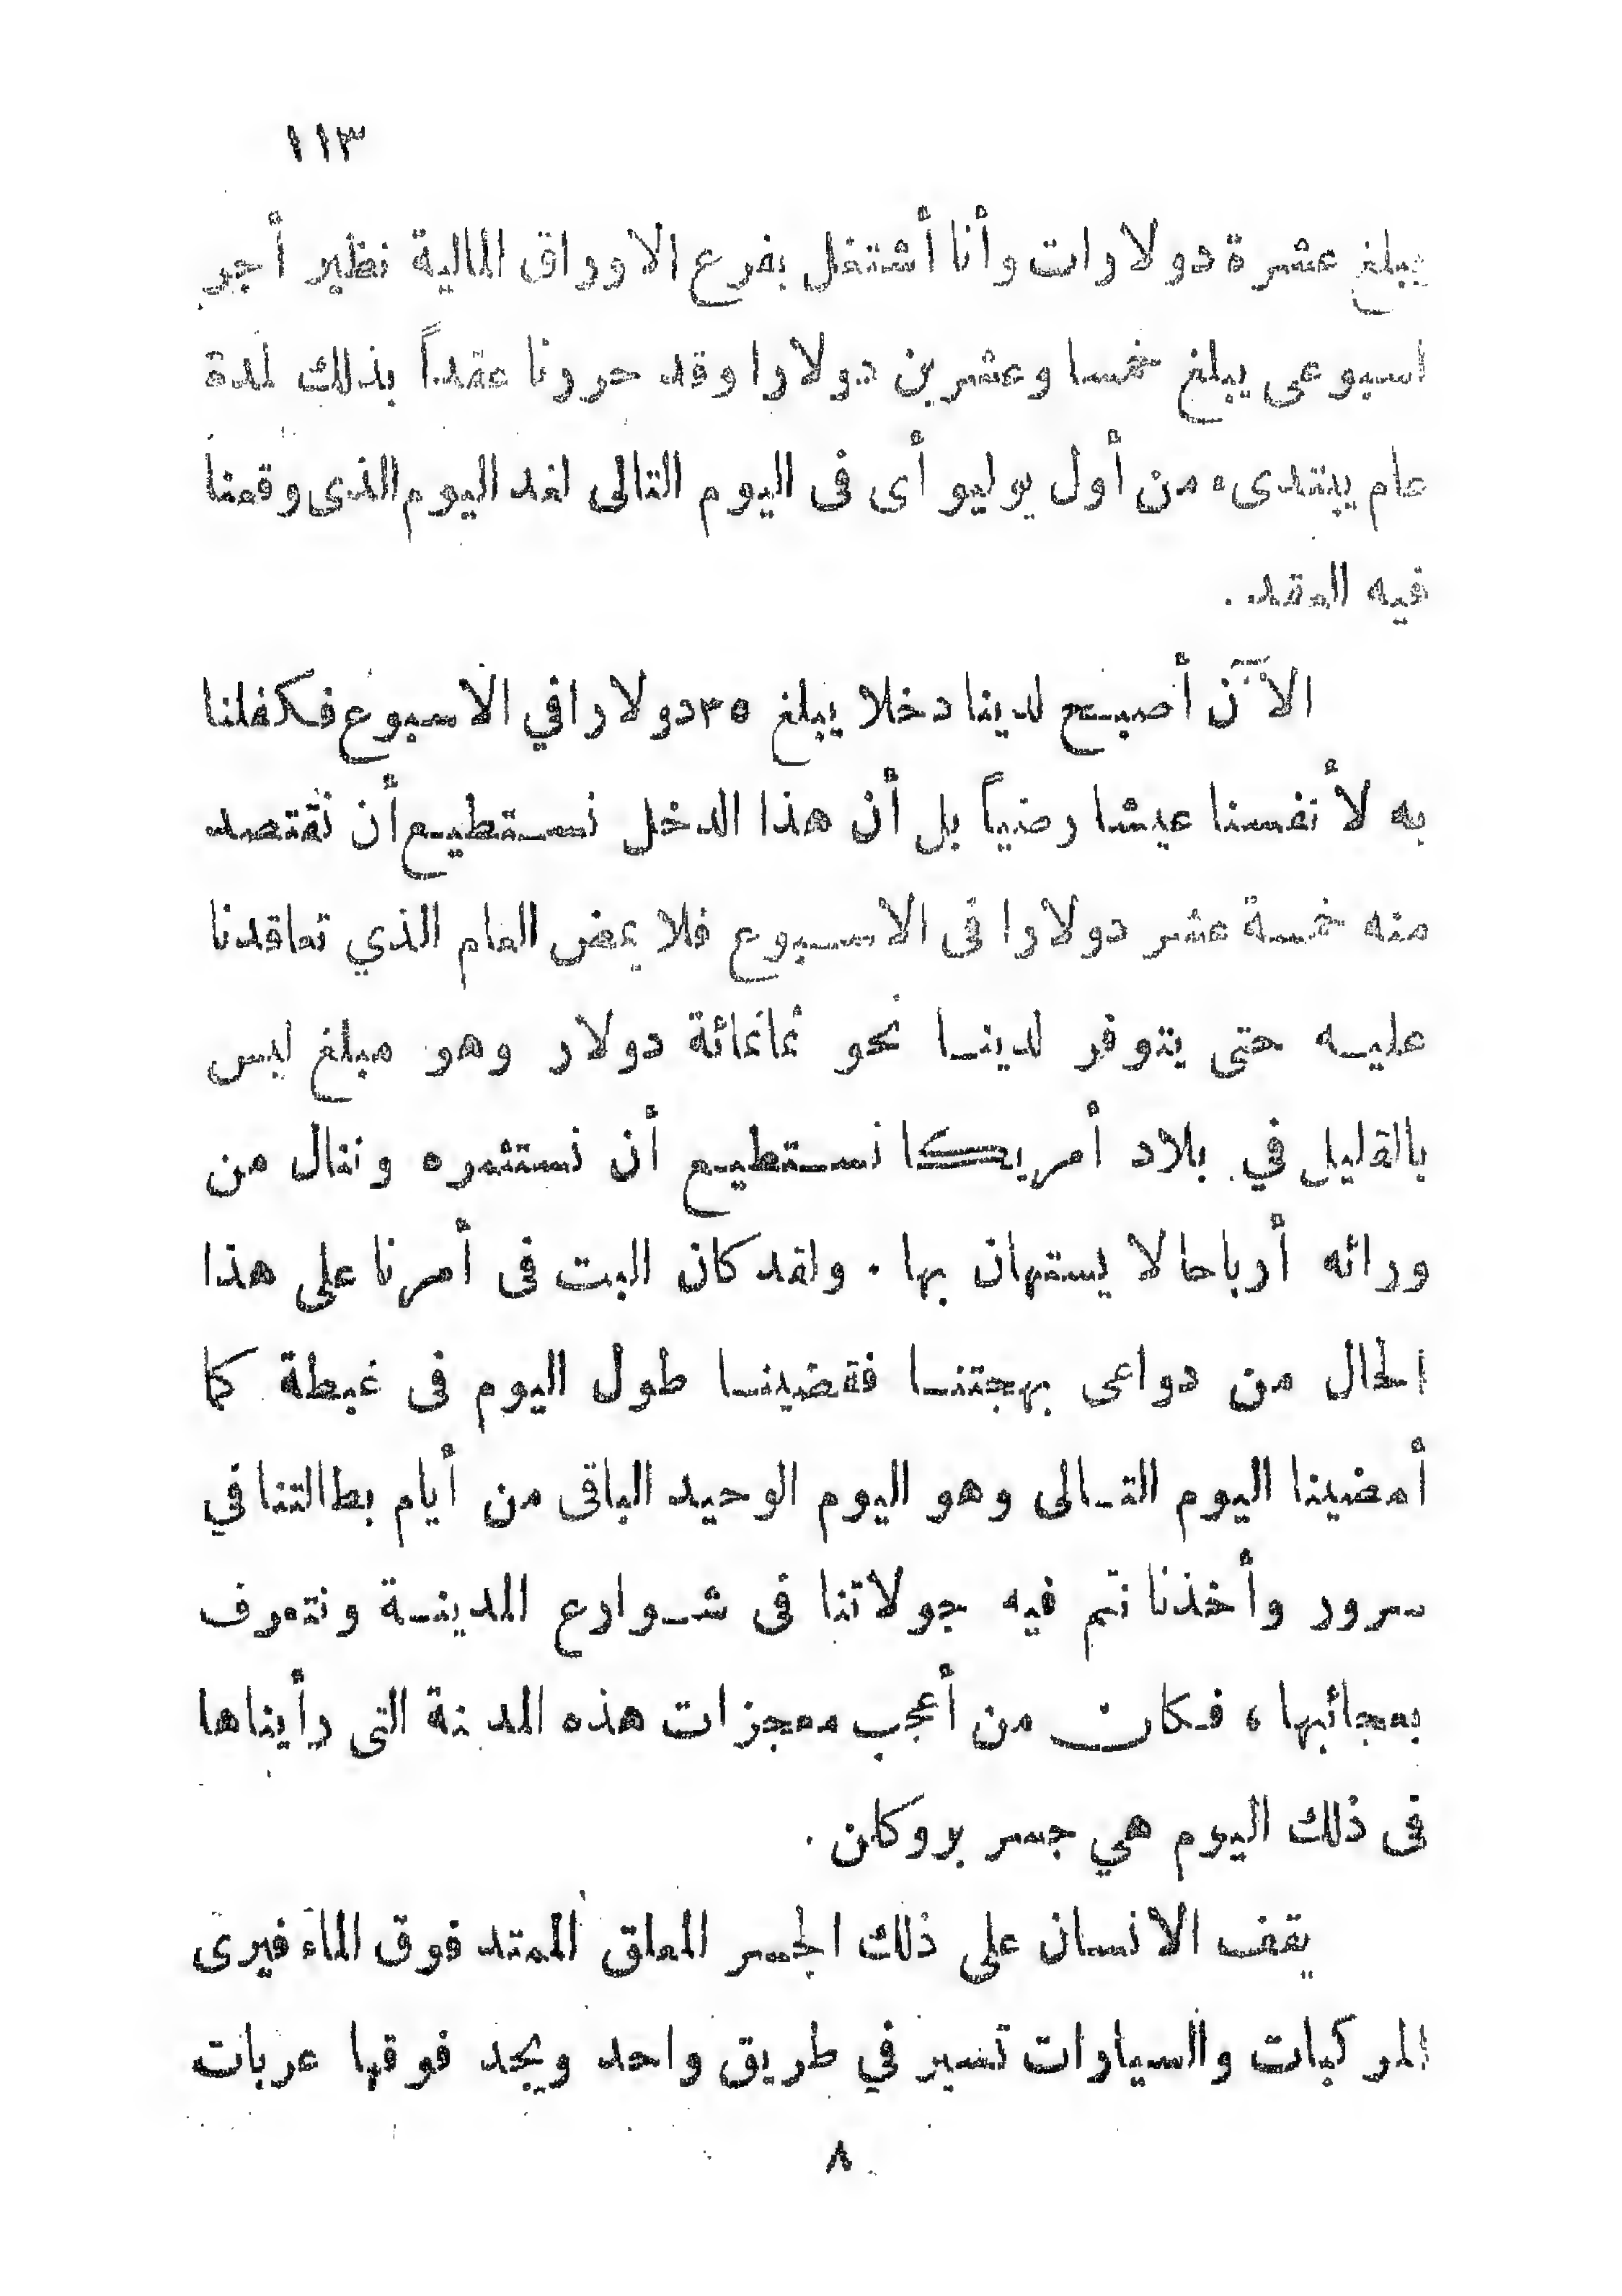 ١١٣
يبلغ عشرة دولارات وأنا أشتغل بفرع الاوراق المالية نظير أجر
اسبوعى يبلغ خمسا وعشرين دولارا وقد حررنا عقداً بذلك لمدة
عام يبتدىء من أول يوليو أى فى اليوم التالى لغد اليوم الذى وقعنا
فيه العقد .
الآن أصبح لدينا دخلا يبلغ ٣٥ دولارا في الاسبوع فكفلنا
به لأنفسنا عيشا رضياً بل أن هذا الدخل نستطيع أن نقتصد
منه خمسة عشر دولارا فى الاسبوع فلا يمض العام الذي تعاقدنا
عليه حتى يتوفر لدينا نحو ثمانمائة دولار وهو مبلغ ليس
بالقليل في بلاد أمريكا نستطيع أن نستثمره وننال من
ورائه أرباحا لا يستهان بها . ولقد كان البت فى أمرنا على هذا
الحال من دواعى بهجتنا فقضينا طول اليوم فى غبطة كما
أمضينا اليوم التالى وهو اليوم الوحيد الباقى من أيام بطالتنا في
سرور وأخذنا نتم فيه جولاتنا فى شوارع المدينة ونتعرف
بعجائبها ، فكان من أعجب معجزات هذه المدينة التى رأيناها
فى ذلك اليوم هي جسر بروكلن .
يقف الانسان على ذلك الجسر المعلق الممتد فوق الماء فيرى
المركبات والسيارات تسير في طريق واحد ويجد فوقها عربات
٨